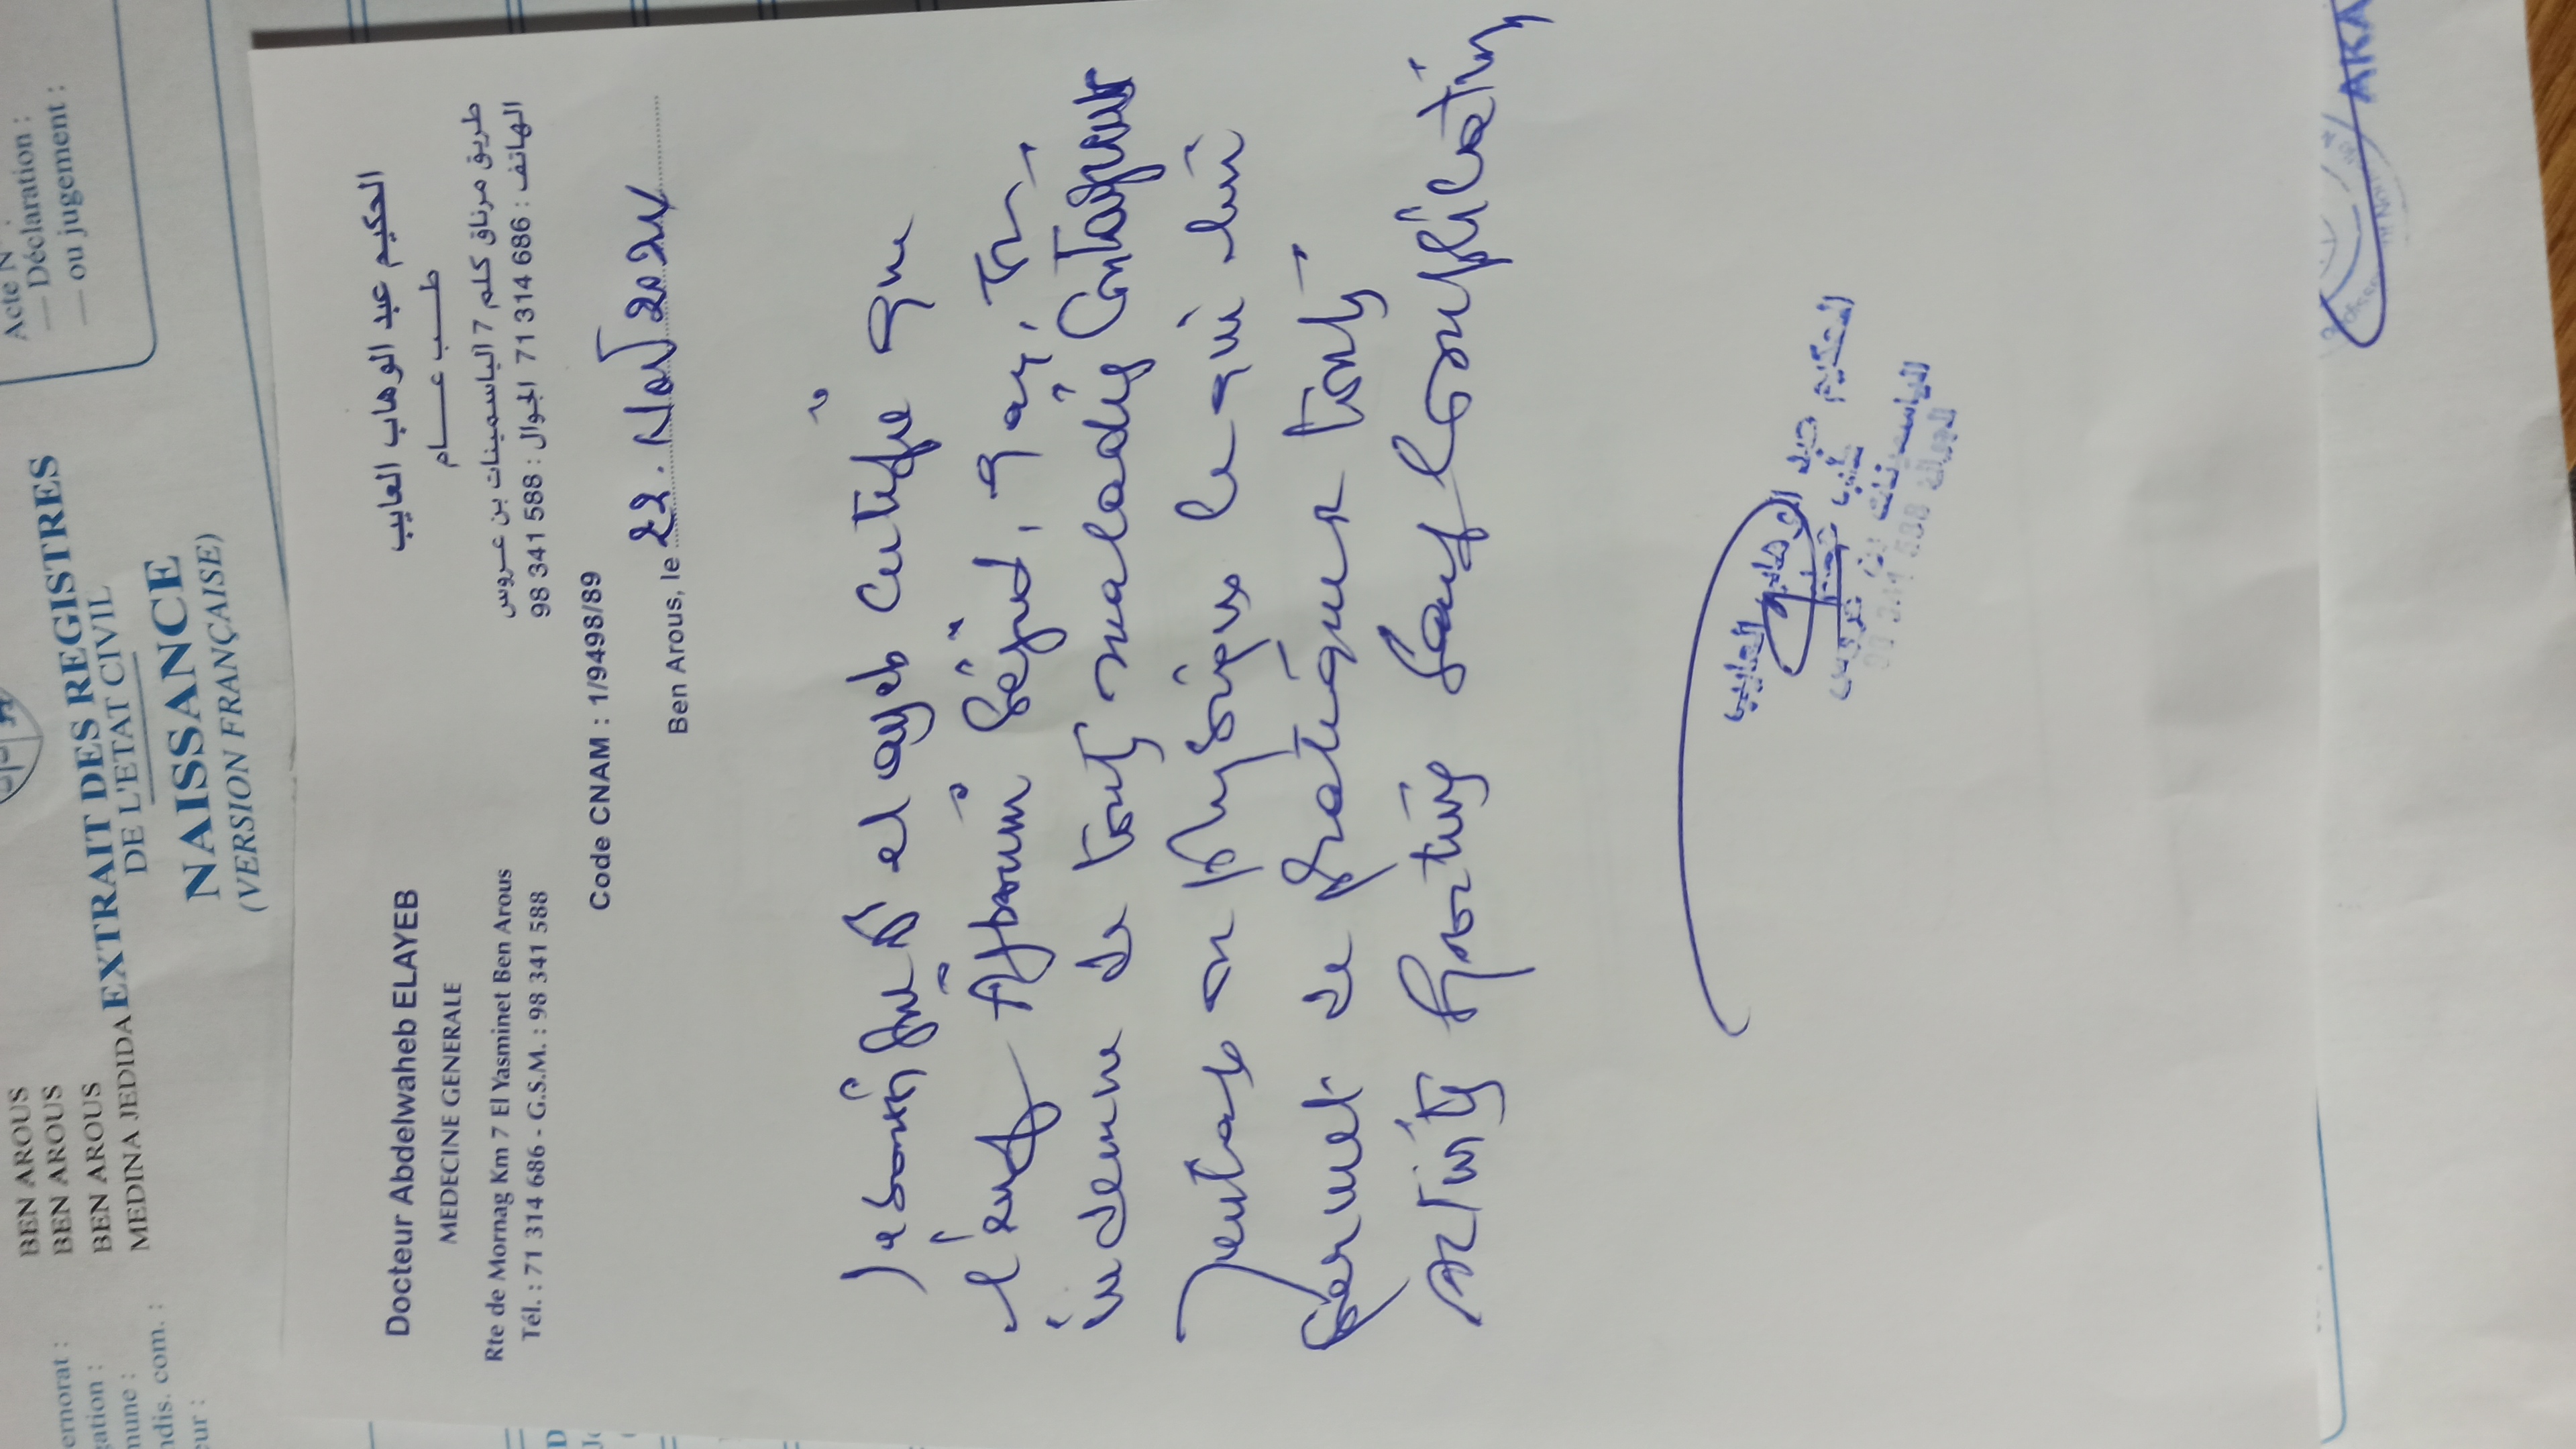 Acte N°
— Déclaration :
— ou jugement :
ernorat :
gation :
mune :
ndis. com. :
eur :
BEN AROUS
BEN AROUS
BEN AROUS
MEDINA JEDIDA
EXTRAIT DES REGISTRES
DE L'ETAT CIVIL
NAISSANCE
(VERSION FRANÇAISE)
Docteur Abdelwaheb ELAYEB
MEDECINE GENERALE
Rte de Mornag Km 7 El Yasminet Ben Arous
Tél. : 71 314 686 - G.S.M. : 98 341 588
الحكيم عبد الوهاب العايب
طـــب عـــــام
طريق مرناق كلم 7 الياسمينات بن عـروس
الهاتف : 686 314 71 الجوال : 588 341 98
Code CNAM : 1/9498/89
Ben Arous, le 22 Nov 2024
Je soussigné Dr el ayeb certifie que
l'enf
indemne de toute maladie contagieuse
mentale ou physique ce qui lui
permet de pratiquer toute
activité sportive sauf complication
الحكيم عبد الوهاب العايب
الياسمينات بن عروس
الجوال 98 341 588
AKA